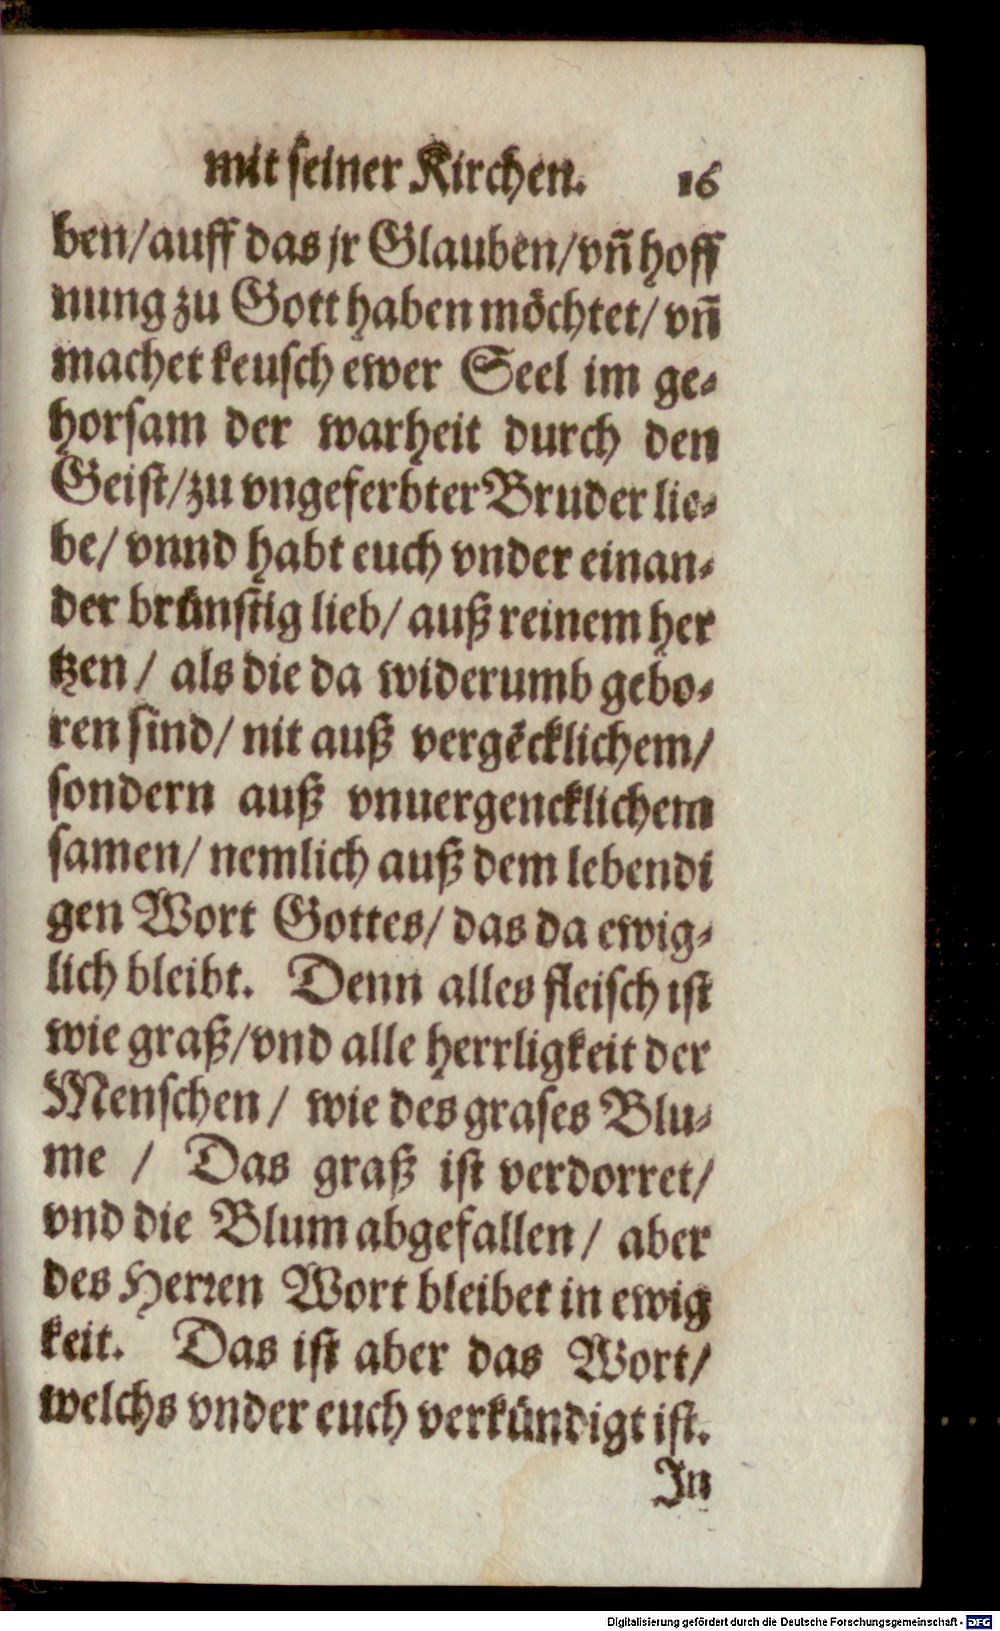 mit seiner Kirchen. 16
ben/auff das jr Glauben/vn̄ hoff
nung zu Gott haben möchtet/ vn̄
machet keusch ewer Seel im ge⸗
horsam der warheit durch den
Geist/zu vngeferbter Bruder lie⸗
be/ vnnd habt euch vnder einan⸗
der brünstig lieb/ auß reinem her
tzen/ als die da widerumb gebo⸗
ren sind/ nit auß vergēcklichem/
sondern auß vnuergencklichem
samen/ nemlich auß dem lebendi
gen Wort Gottes/ das da ewig⸗
lich bleibt. Denn alles fleisch ist
wie graß/vnd alle herrligkeit der
Menschen/ wie des grases Blu⸗
me / Das graß ist verdorret/
vnd die Blum abgefallen/ aber
des Herren Wort bleibet in ewig
keit. Das ist aber das Wort/
welchs vnder euch verkündigt ist.
In
Digitalisierung gefördert durch die Deutsche Forschungsgemeinschaft - DFG